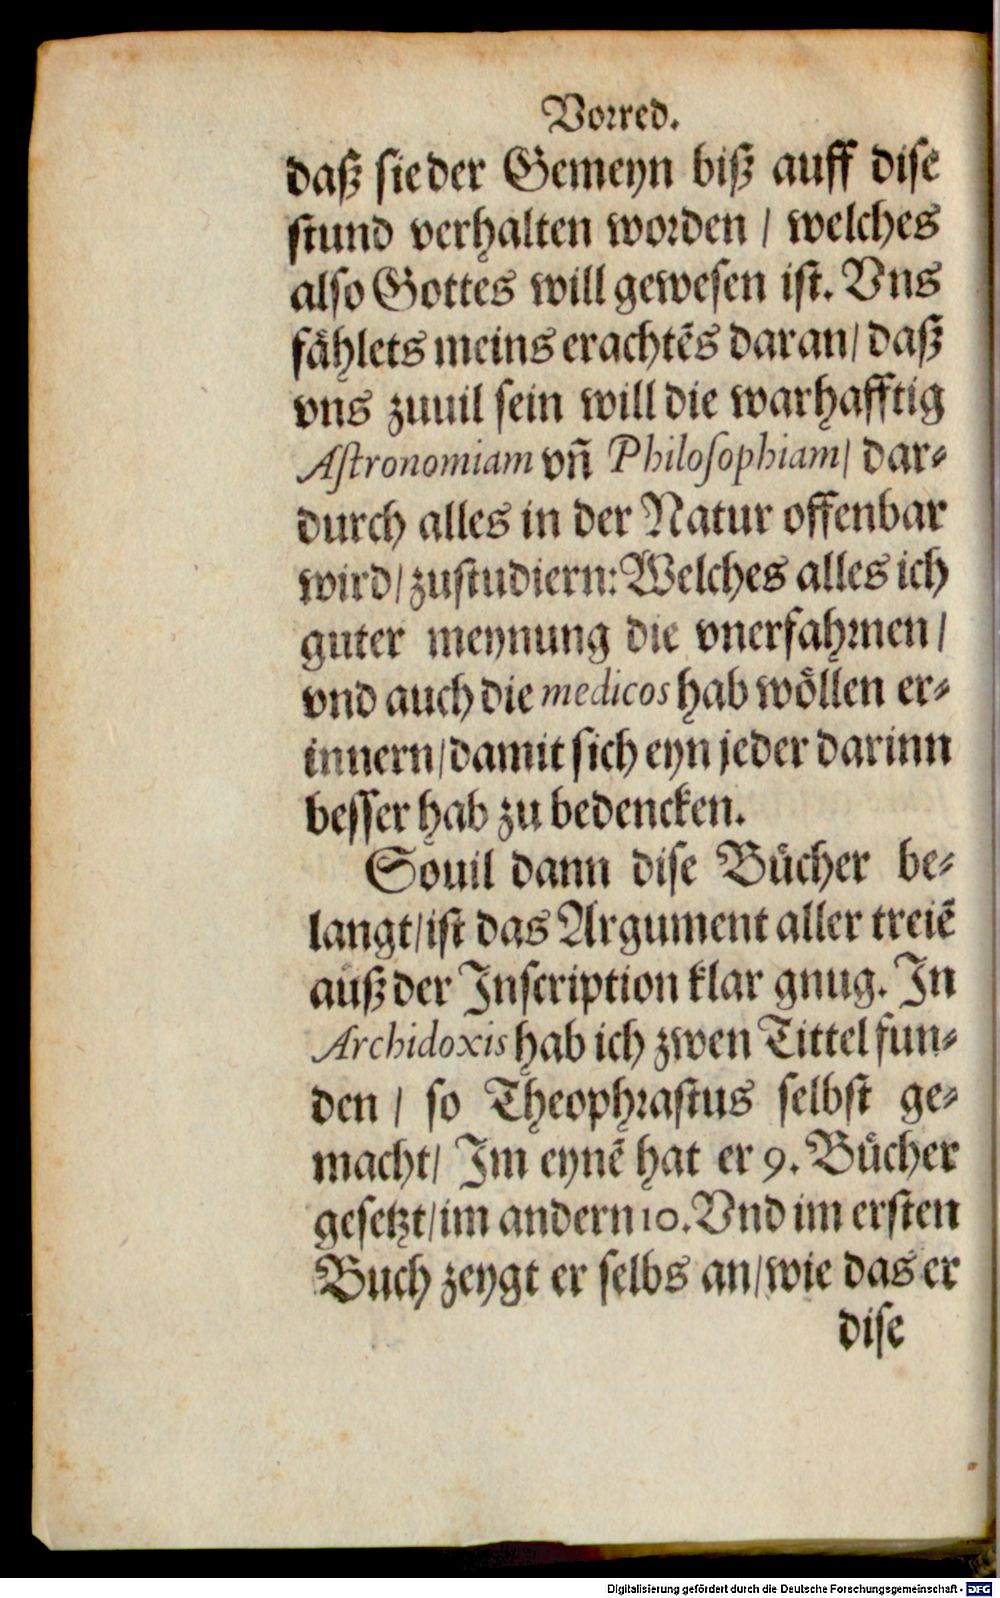 Vorred.
daß sie der Gemeyn biß auff dise
stund verhalten worden / welches
also Gottes will gewesen ist. Vns
fählets meins erachtēs daran / daß
vns zuuil sein will die warhafftig
Astronomiam vñ Philosophiam / dar⸗
durch alles in der Natur offenbar
wird / zustudiern: Welches alles ich
guter meynung die vnerfahrnen /
vnd auch die medicos hab wöllen er⸗
innern / damit sich eyn jeder darinn
besser hab zu bedencken.
Souil dann dise Bücher be⸗
langt / ist das Argument aller treiē
auß der Inscription klar gnug. In
Archidoxis hab ich zwen Tittel fun⸗
den / so Theophrastus selbst ge⸗
macht / Im eynē hat er 9. Bücher
gesetzt / im andern 10. Vnd im ersten
Buch zeygt er selbs an / wie das er
dise
Digitalisierung gefördert durch die Deutsche Forschungsgemeinschaft - DFG